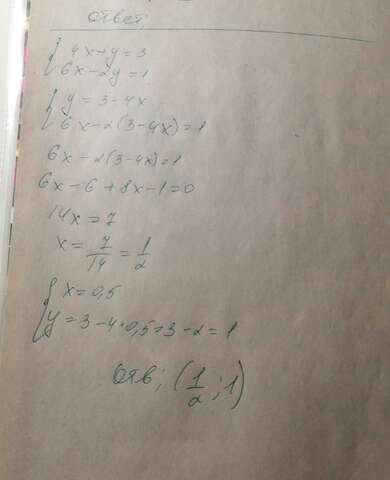 ответ
{ 4x+y=3
6x-2y=1
{ y=3-4x
6x-2(3-4x)=1
6x-2(3-4x)=1
6x-6+8x-1=0
14x=7
x=7/14=1/2
{ x=0,5
y=3-4*0,5=3-2=1
Отв; (1/2;1)